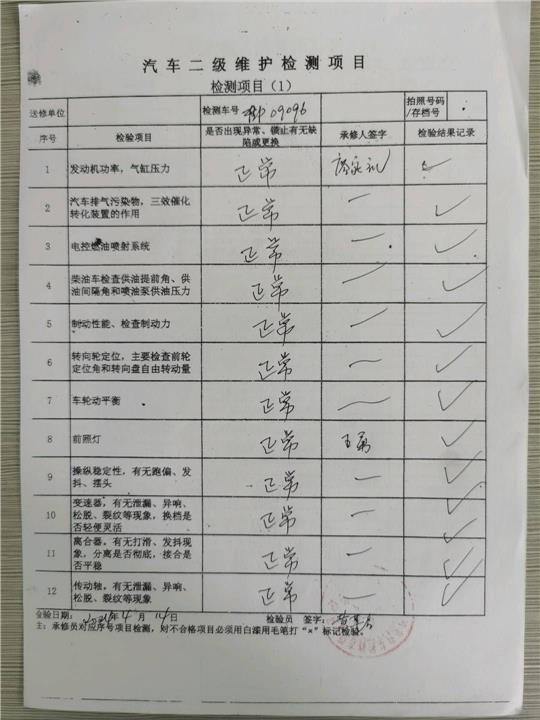 汽车二级维护检测项目
检测项目（1）
送修单位 检测车号 09096 拍照号码/存档号
序号 检验项目 是否出现异常、锁止有无缺陷或更换 承修人签字 检验结果记录
1 发动机功率，气缸压力 正常 ✓
2 汽车排气污染物，三效催化转化装置的作用 正常 — ✓
3 电控燃油喷射系统 正常 — ✓
4 柴油车检查供油提前角、供油间隔角和喷油泵供油压力 正常 — ✓
5 制动性能、检查制动力 正常 — ✓
6 转向轮定位，主要检查前轮定位角和转向盘自由转动量 正常 — ✓
7 车轮动平衡 正常 — ✓
8 前照灯 正常 王勇 ✓
9 操纵稳定性，有无跑偏、发抖、摆头 正常 — ✓
10 变速器，有无泄漏、异响、松脱、裂纹等现象，换档是否轻便灵活 正常 — ✓
11 离合器，有无打滑、发抖现象，分离是否彻底，接合是否平稳 正常 — ✓
12 传动轴，有无泄漏、异响、松脱、裂纹等现象 正常 — ✓
金验日期： 年4月14日 检验员 签字：
主：承修员对应序号项目检测，对不合格项目必须用白漆用毛笔打“×”标记检验。